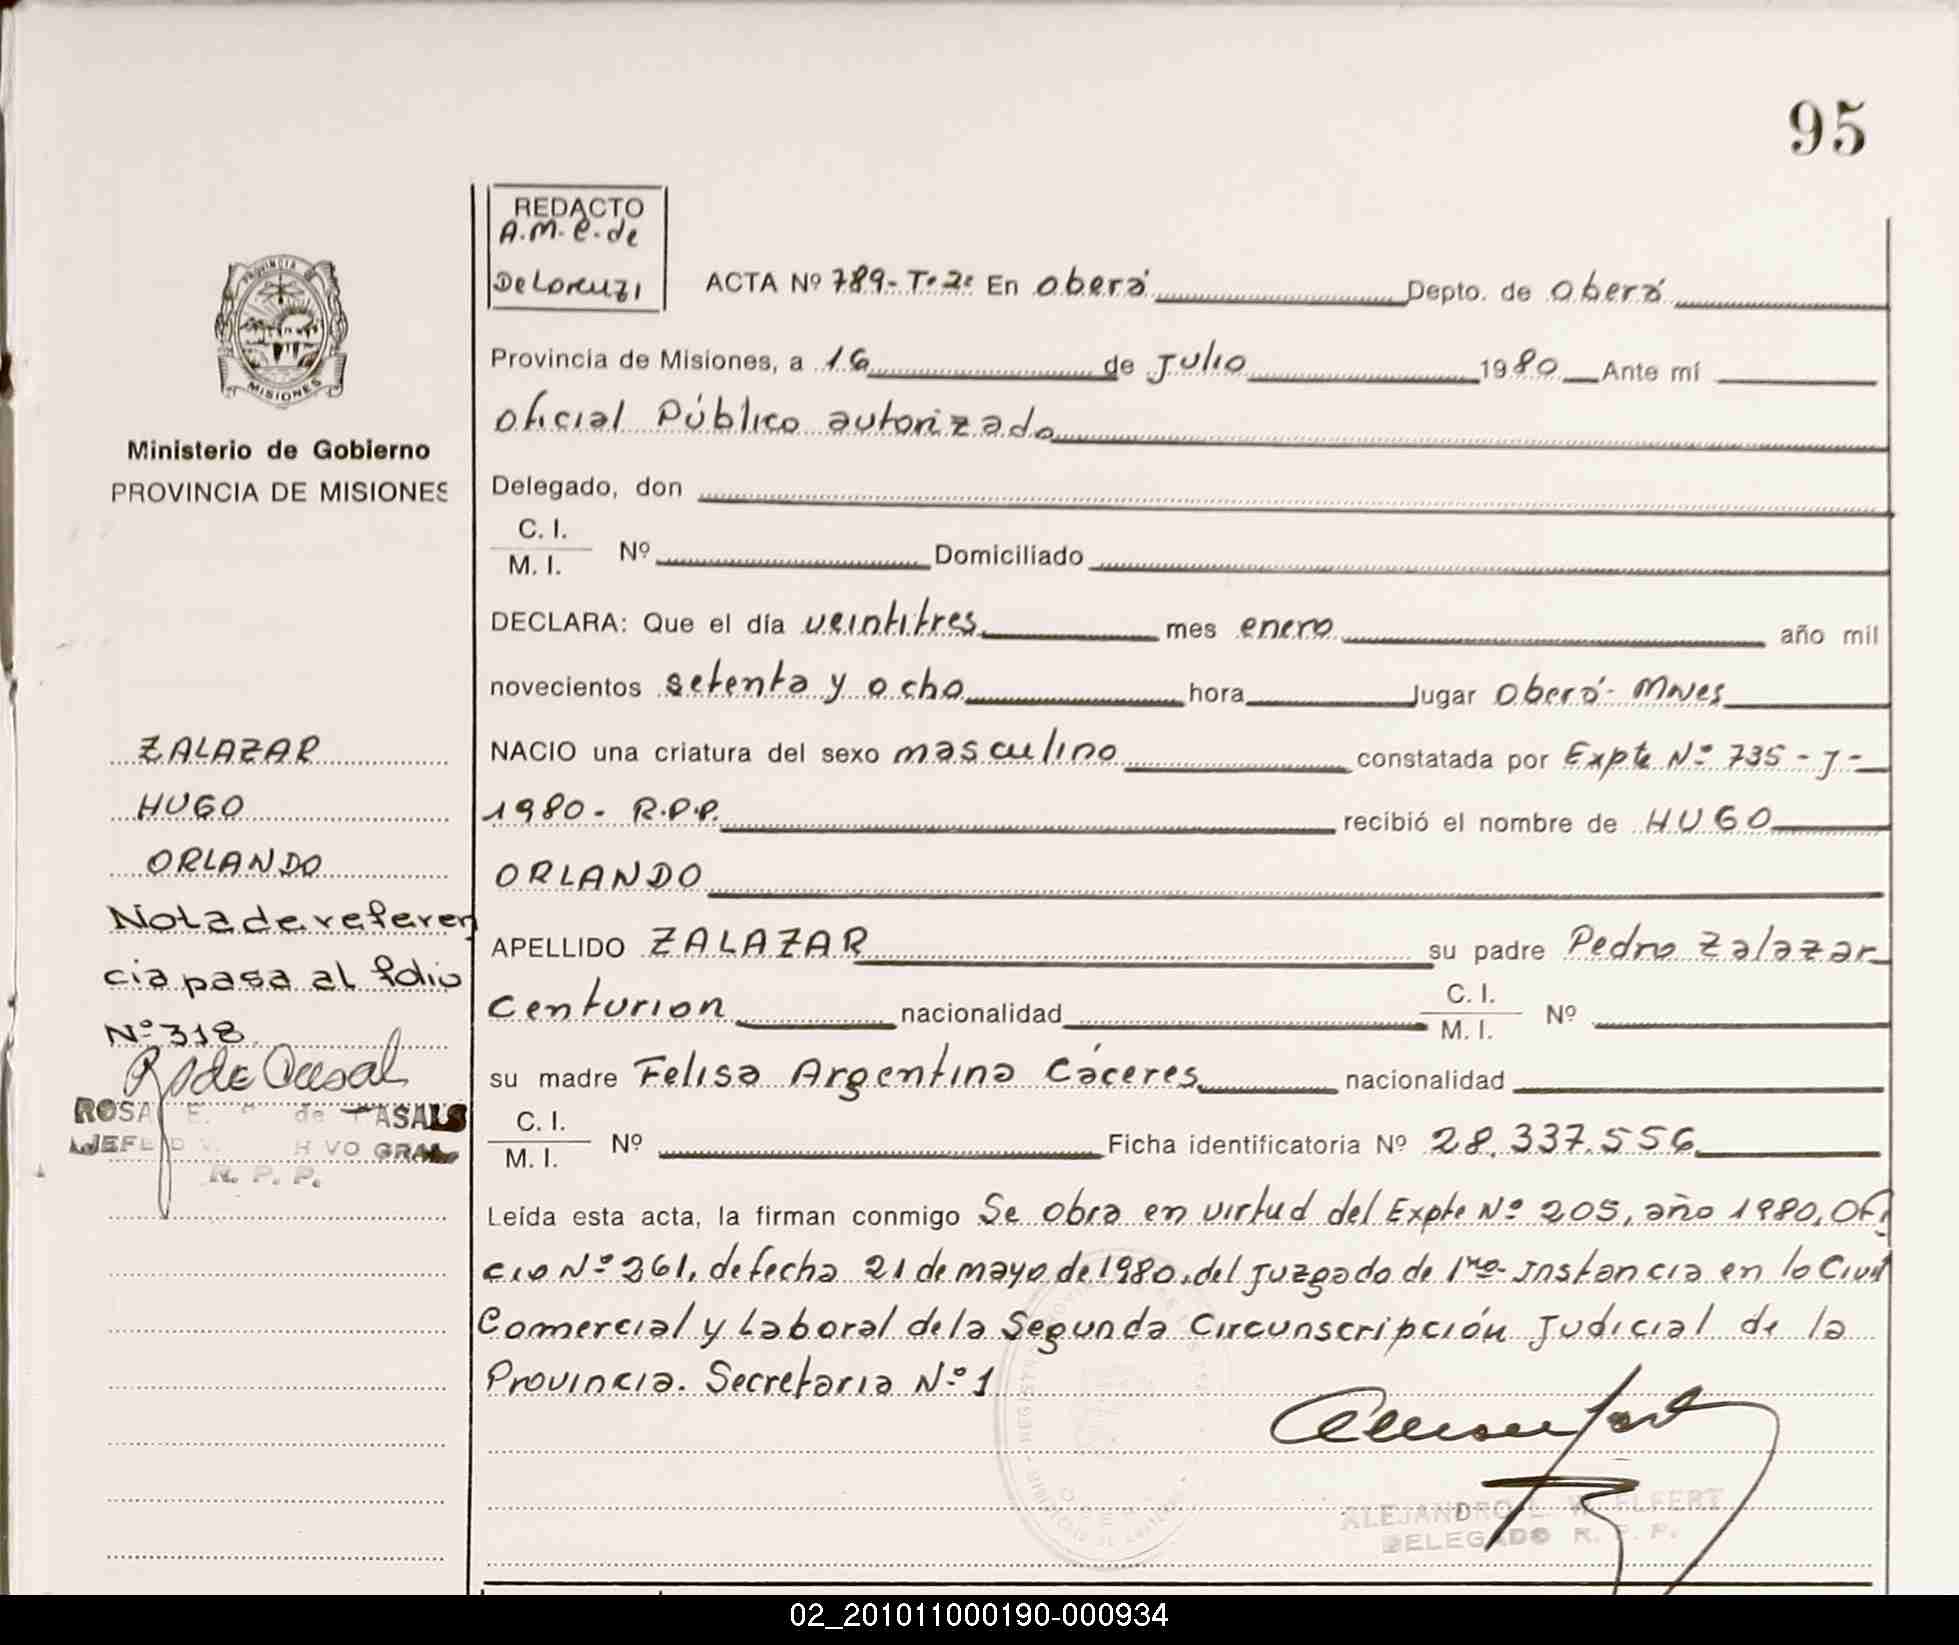 95
REDACTO
A.M.C. de
De Lorenzi
ACTA Nº 789-Tº 2º En Oberá Depto. de Oberá
PROVINCIA DE
MISIONES
Provincia de Misiones, a 16 de Julio 1980 Ante mí
Oficial Público autorizado
Ministerio de Gobierno
PROVINCIA DE MISIONES
Delegado, don
C. I.
M. I. Nº Domiciliado
DECLARA: Que el día veintitres mes enero año mil
novecientos setenta y ocho hora lugar Oberá- Mnes
NACIO una criatura del sexo masculino constatada por Expte Nº 735 - J -
1980 - R.P.P. recibió el nombre de HUGO
ORLANDO
APELLIDO ZALAZAR su padre Pedro Zalazar
Centurion nacionalidad C. I.
M. I. Nº
su madre Felisa Argentina Cáceres nacionalidad
C. I.
M. I. Nº Ficha identificatoria Nº 28.337.556
Leída esta acta, la firman conmigo Se obra en virtud del Expte Nº 205, año 1980, Ofi
cio Nº 261, de fecha 21 de mayo de 1980, del Juzgado de 1ra. Instancia en lo Civil
Comercial y Laboral de la Segunda Circunscripción Judicial de la
Provincia. Secretaria Nº 1
ZALAZAR
HUGO
ORLANDO
Nota de referen
cia pasa al folio
Nº 318.
R de Casals
ROSA E. M de CASALS
JEFE VO GRAL
R. P. P.
ALEJANDRO L. W. ELFERT
DELEGADO R. P. P.
02_201011000190-000934